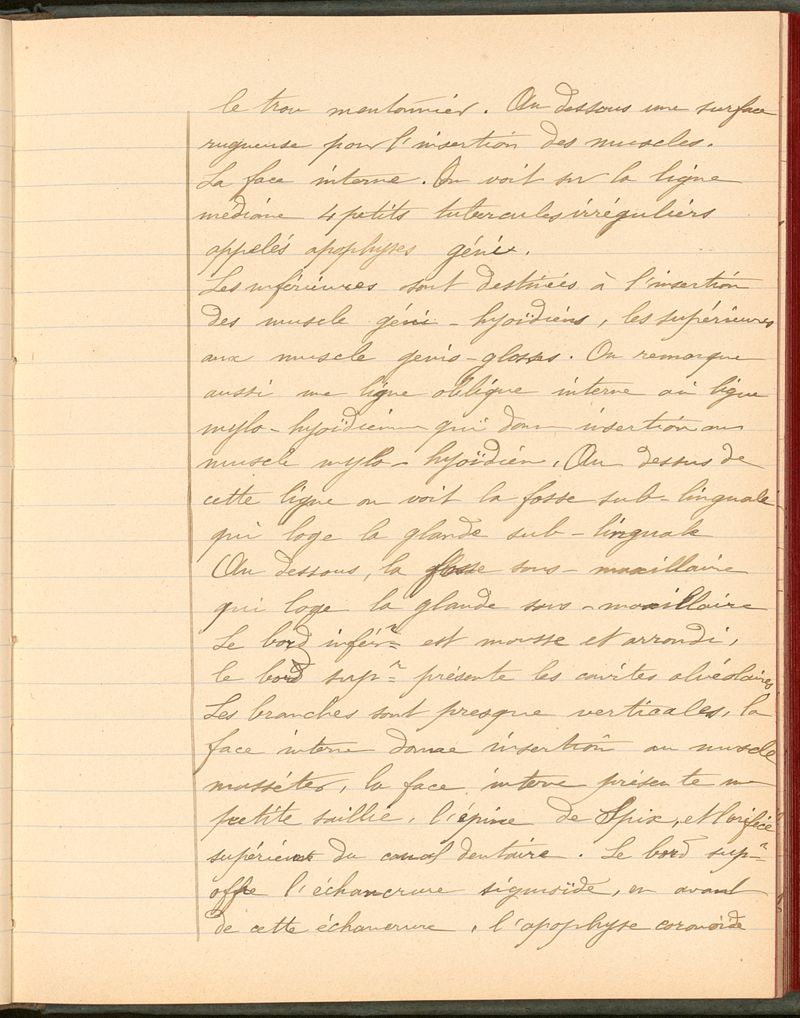 le trou mentonnier. Au dessous une surface
rugueuse pour l'insertion des muscles.
La face interne. On voit sur la ligne
médiane 4 petits tubercules irréguliers
appelés apophyses géni.
Les inférieures sont destinées à l'insertion
des muscle géni-hyoïdiens, les supérieures
aux muscle génio-glosses. On remarque
aussi une ligne oblique interne ou ligne
mylo-hyoïdienne qui donne insertion au
muscle mylo-hyoïdien. Au dessus de
cette ligne on voit la fosse sub-linguale
qui loge la glande sub-linguale
Au dessous, la fosse sous-maxillaire
qui loge la glande sous-maxillaire
Le bord infér^r est mousse et arrondi,
le bord sup^r présente les cavités alvéolaires
Les branches sont presque verticales, la
face interne donne insertion au muscle
masséter, la face interne présente une
petite saillie, l'épine de Spix, et l'orifice
supérieur du canal dentaire. Le bord sup^r
offre l'échancrure sigmoïde, en avant
de cette échancrure, l'apophyse coronoïde